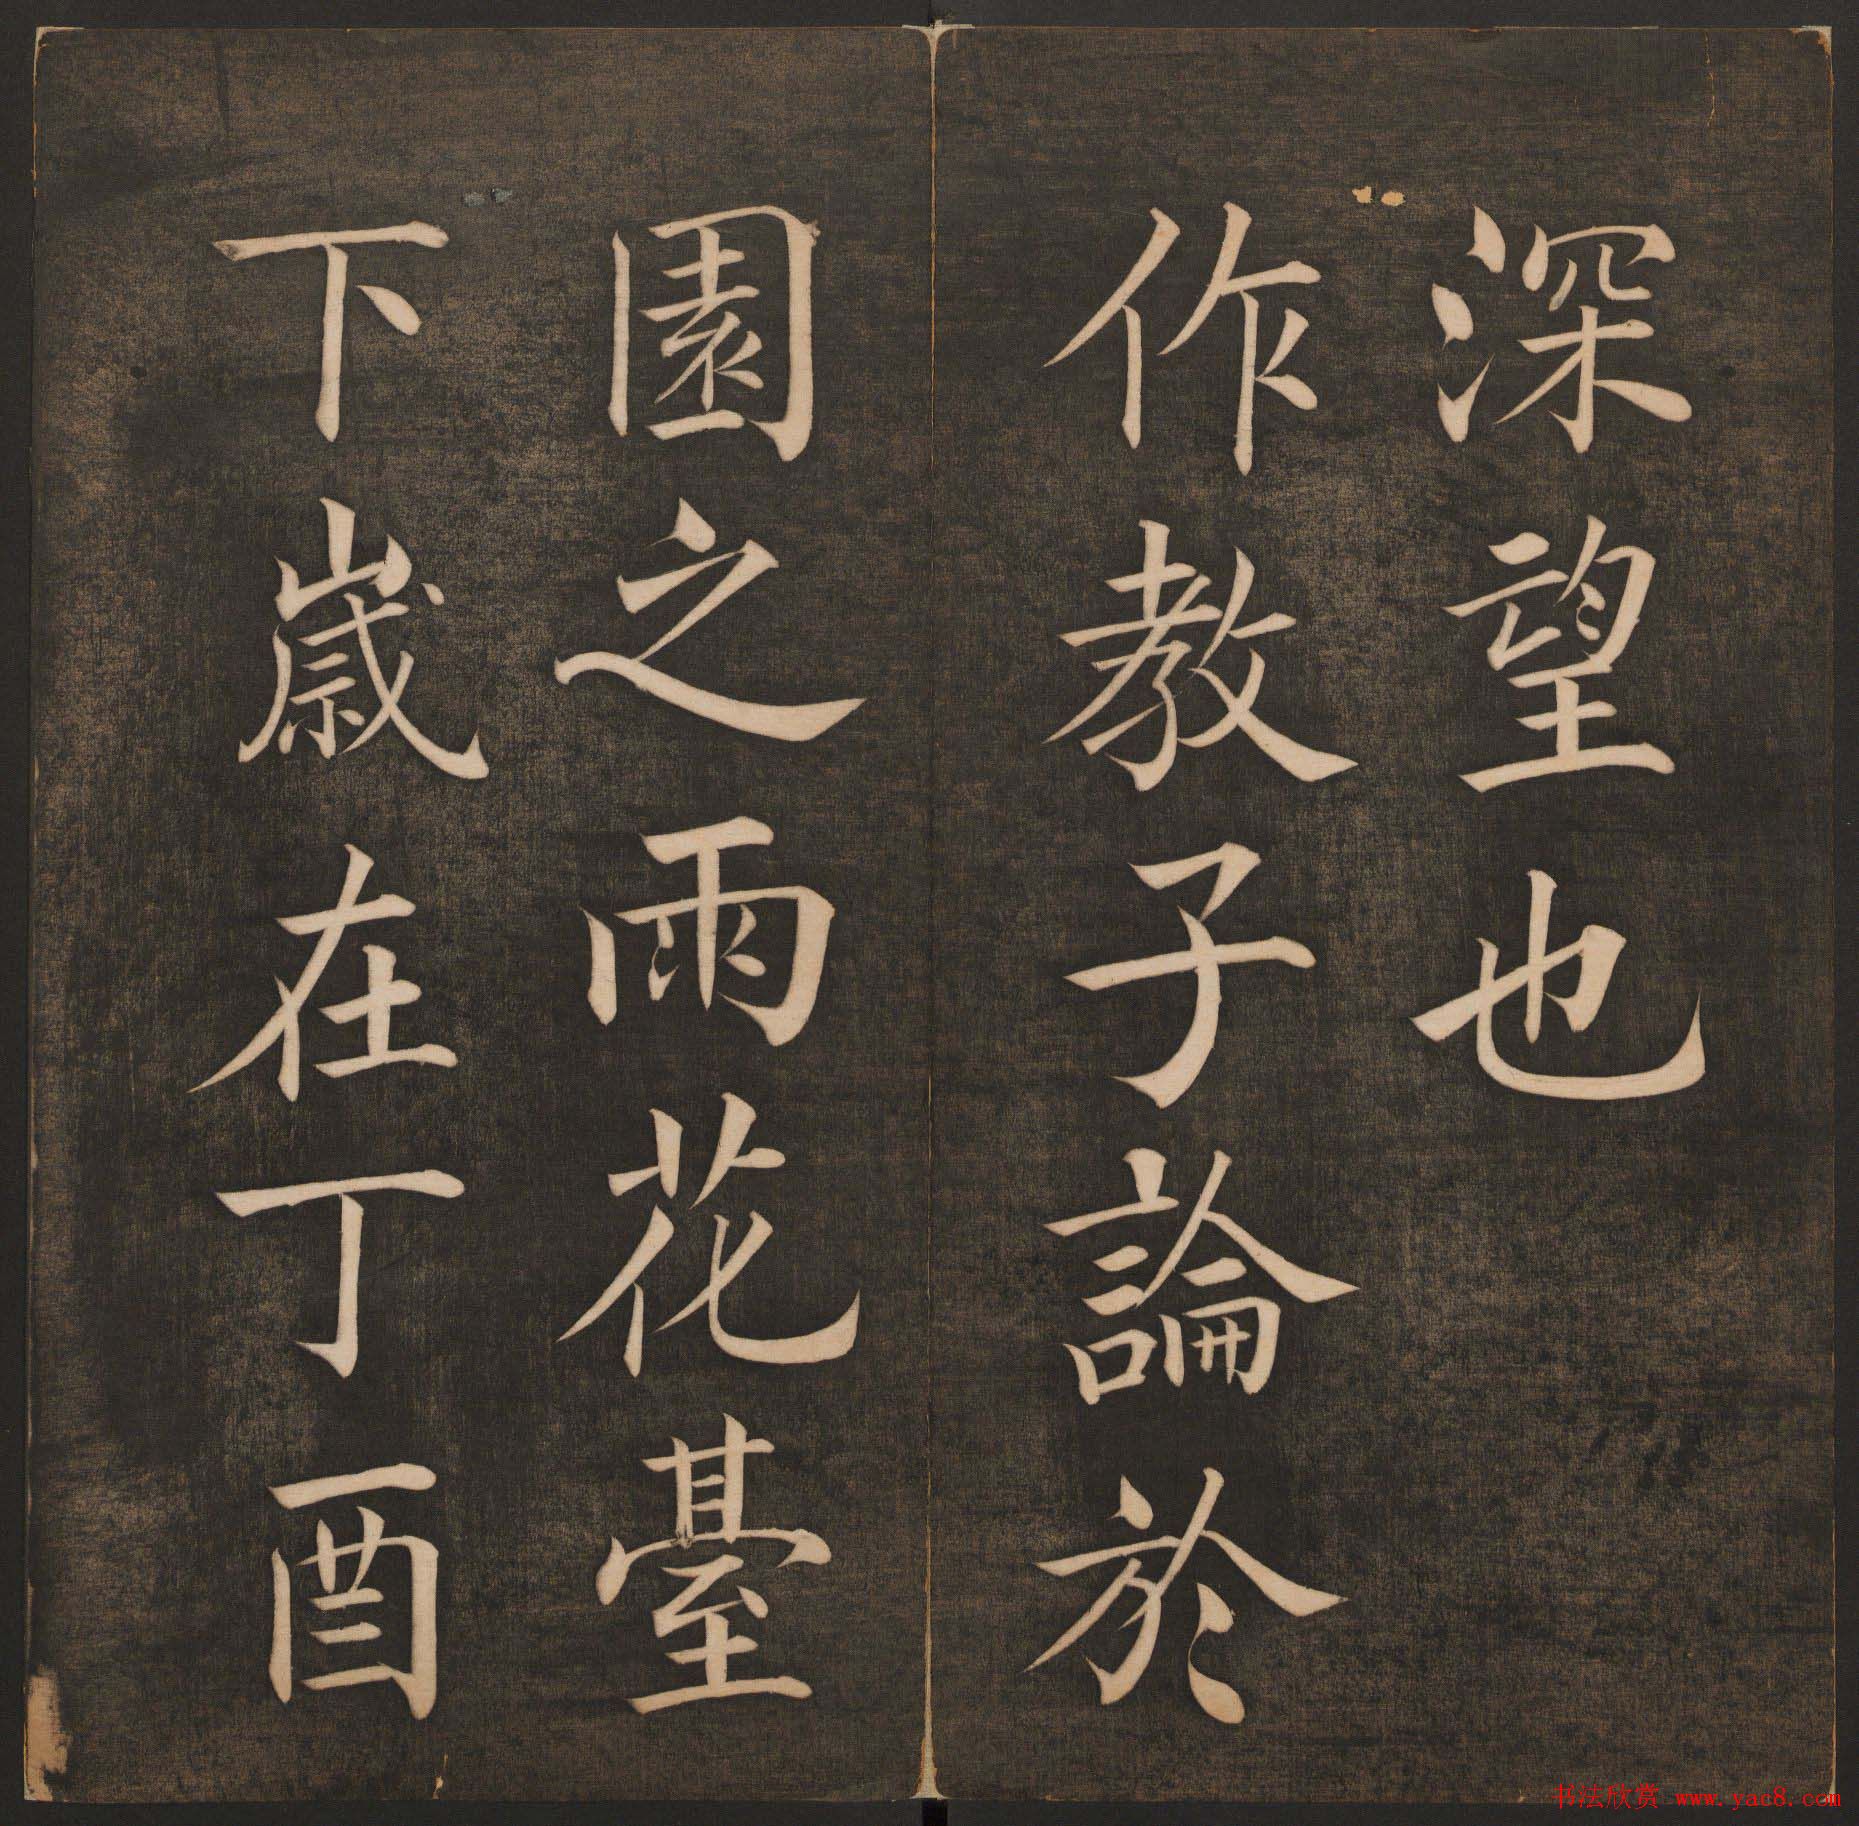 深望也
作教子論於
園之雨花臺
下歲在丁酉
书法欣赏 www.yac8.com